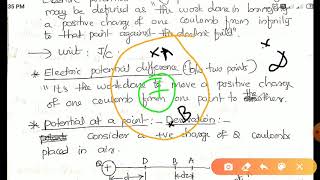 :35 PM
may be defined as "the work done in bringing
a positive charge of one coulomb from infinity
to that point against the electric field".
→ unit: J/C
* Electric potential difference (b/w two points)
"It's the workdone to move a positive charge
of one coulomb from one point to the other.
* Potential at a point: - Derivation: -
Consider a +ve charge of Q coulombs
placed in air.
A
B
D
Q
+
D B A
d